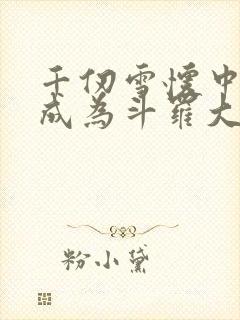 千仞雪怀中
成为斗罗大
粉小黛